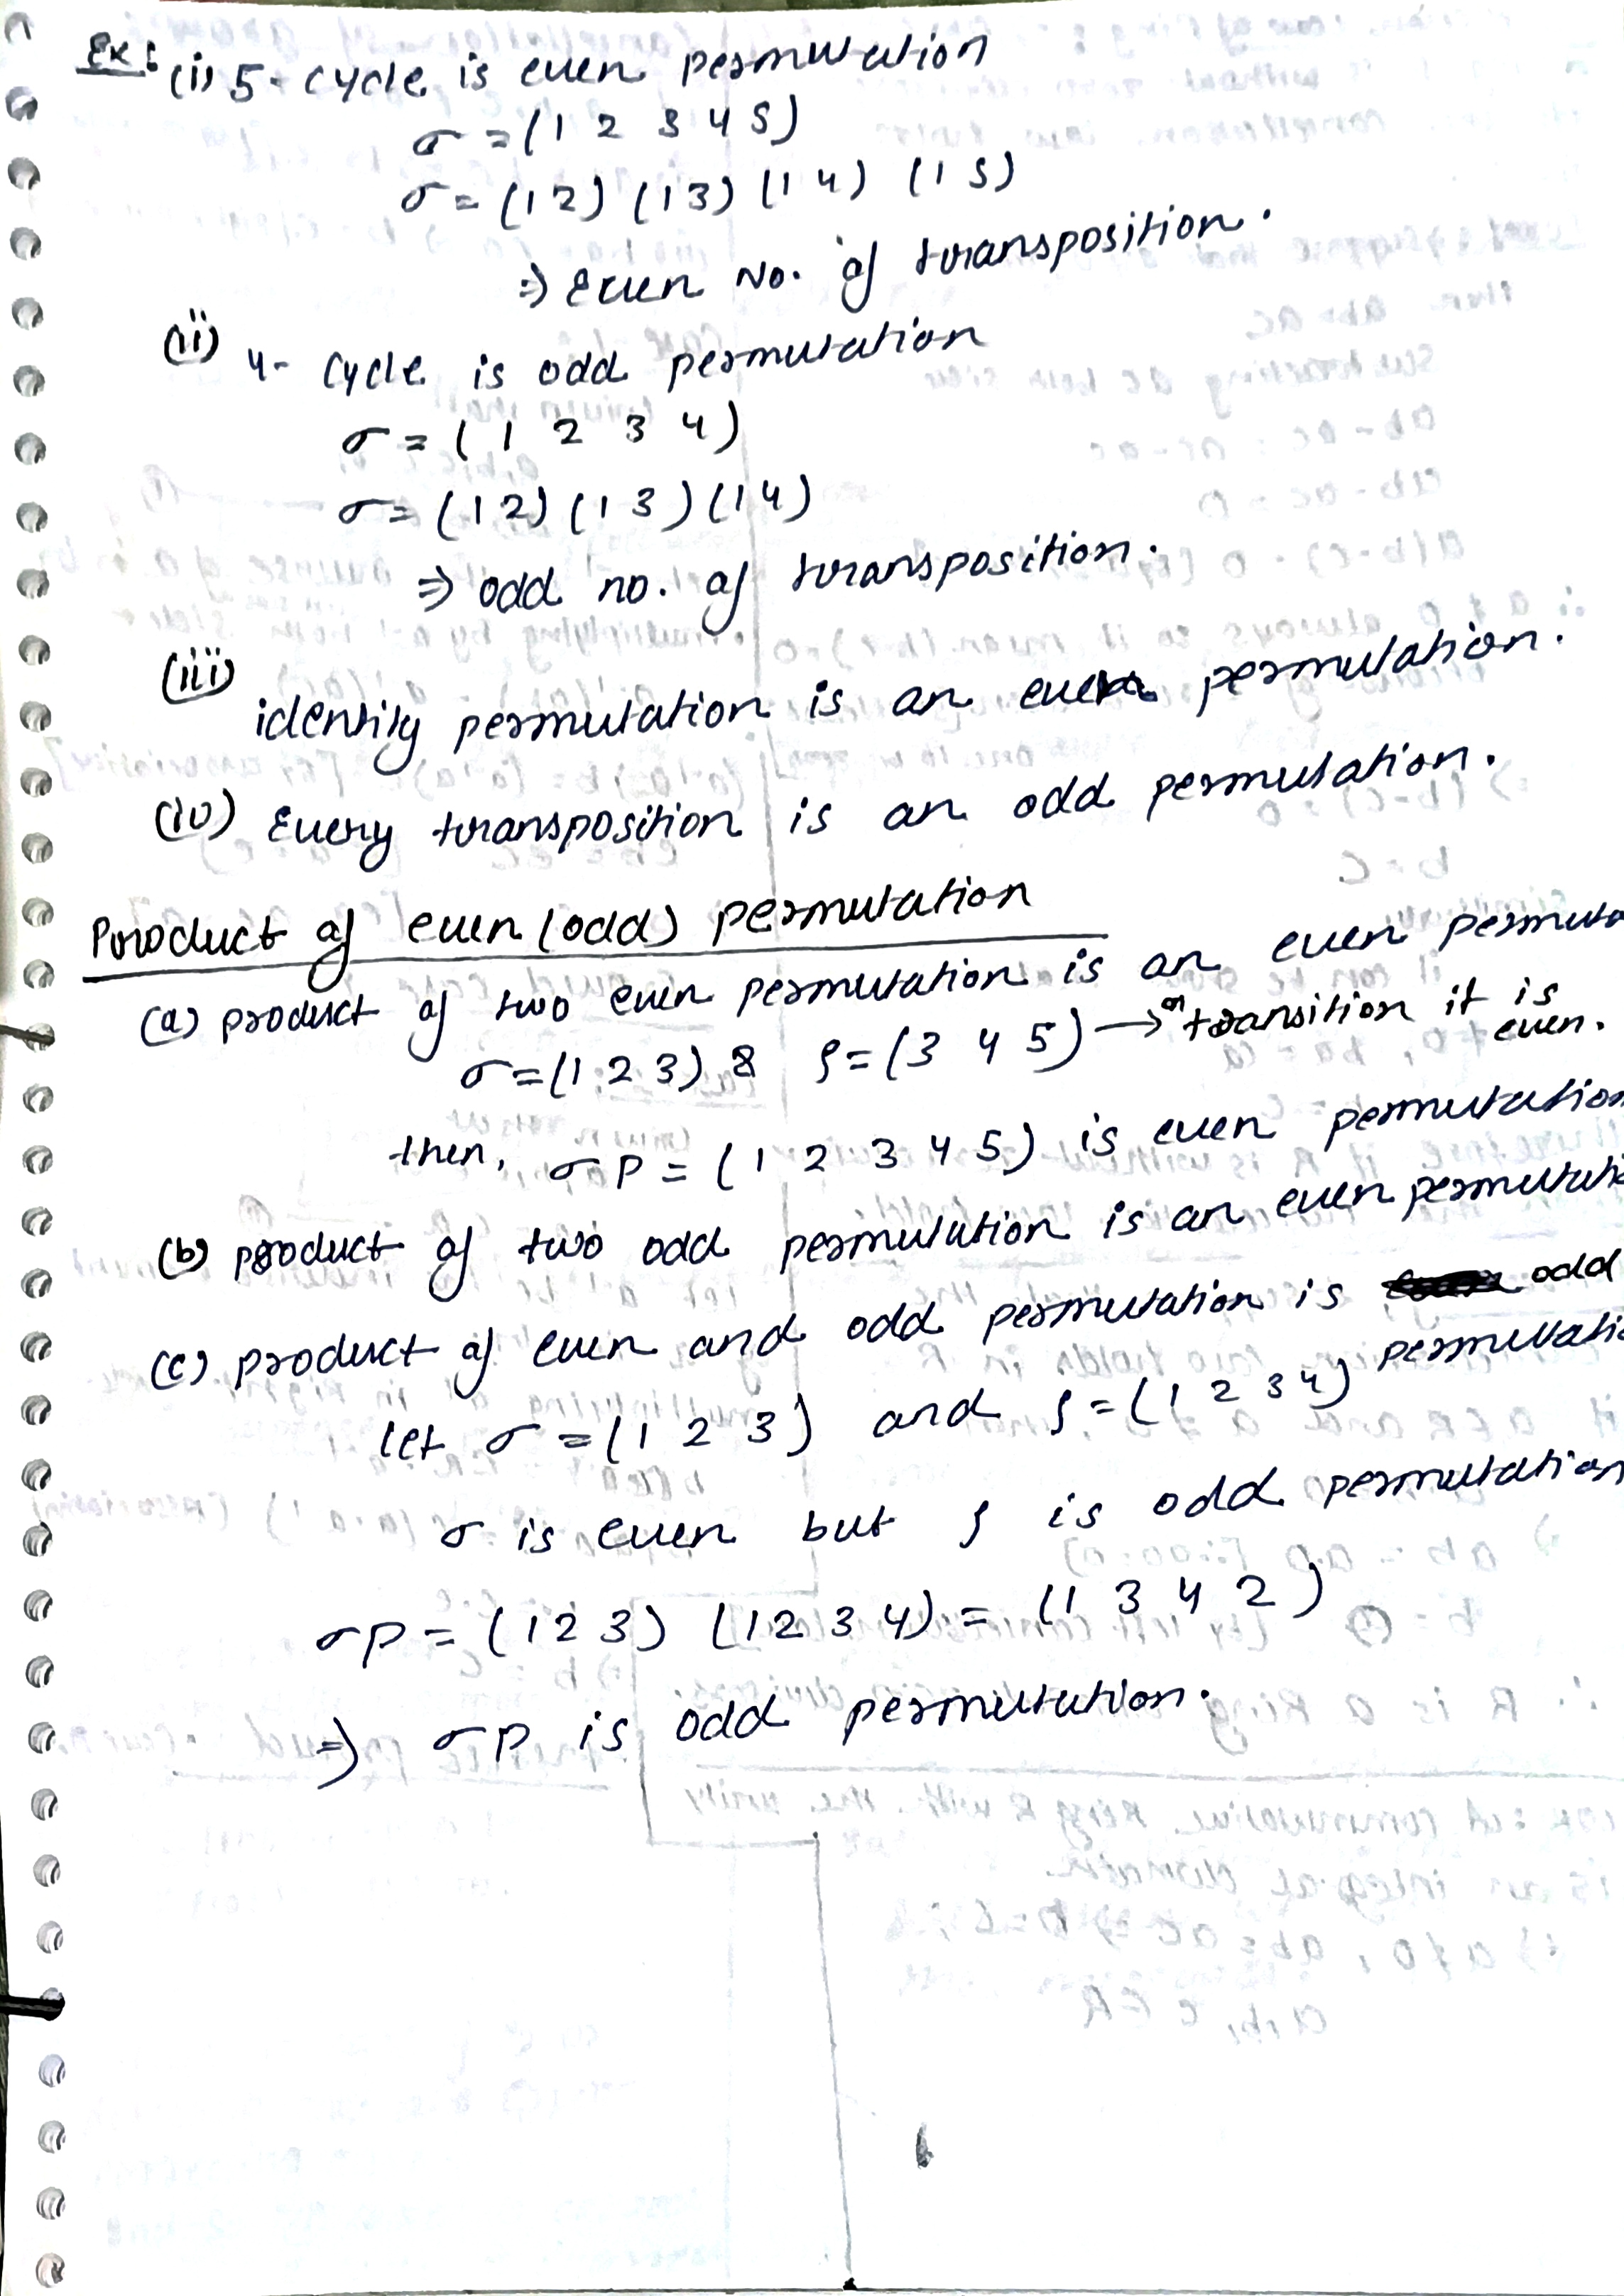 Ex: (i) 5-cycle is even permutation
σ = (1 2 3 4 5)
σ = (1 2) (1 3) (1 4) (1 5)
⇒ Even No. of transposition.
(ii) 4- cycle is odd permutation
σ = (1 2 3 4)
σ = (1 2) (1 3) (1 4)
⇒ odd no. of transposition.
(iii) identity permutation is an even permutation.
(iv) Every transposition is an odd permutation.
Product of even (odd) permutation
(a) product of two even permutation is an even permuta
σ = (1 2 3) & ρ = (3 4 5) → on transition it is even.
then, σρ = (1 2 3 4 5) is even permutation
(b) product of two odd permutation is an even permutati
(c) product of even and odd permutation is odd permutati
let σ = (1 2 3) and ρ = (1 2 3 4)
σ is even but ρ is odd permutation
σρ = (1 2 3) (1 2 3 4) = (1 3 4 2)
⇒ σρ is odd permutation.